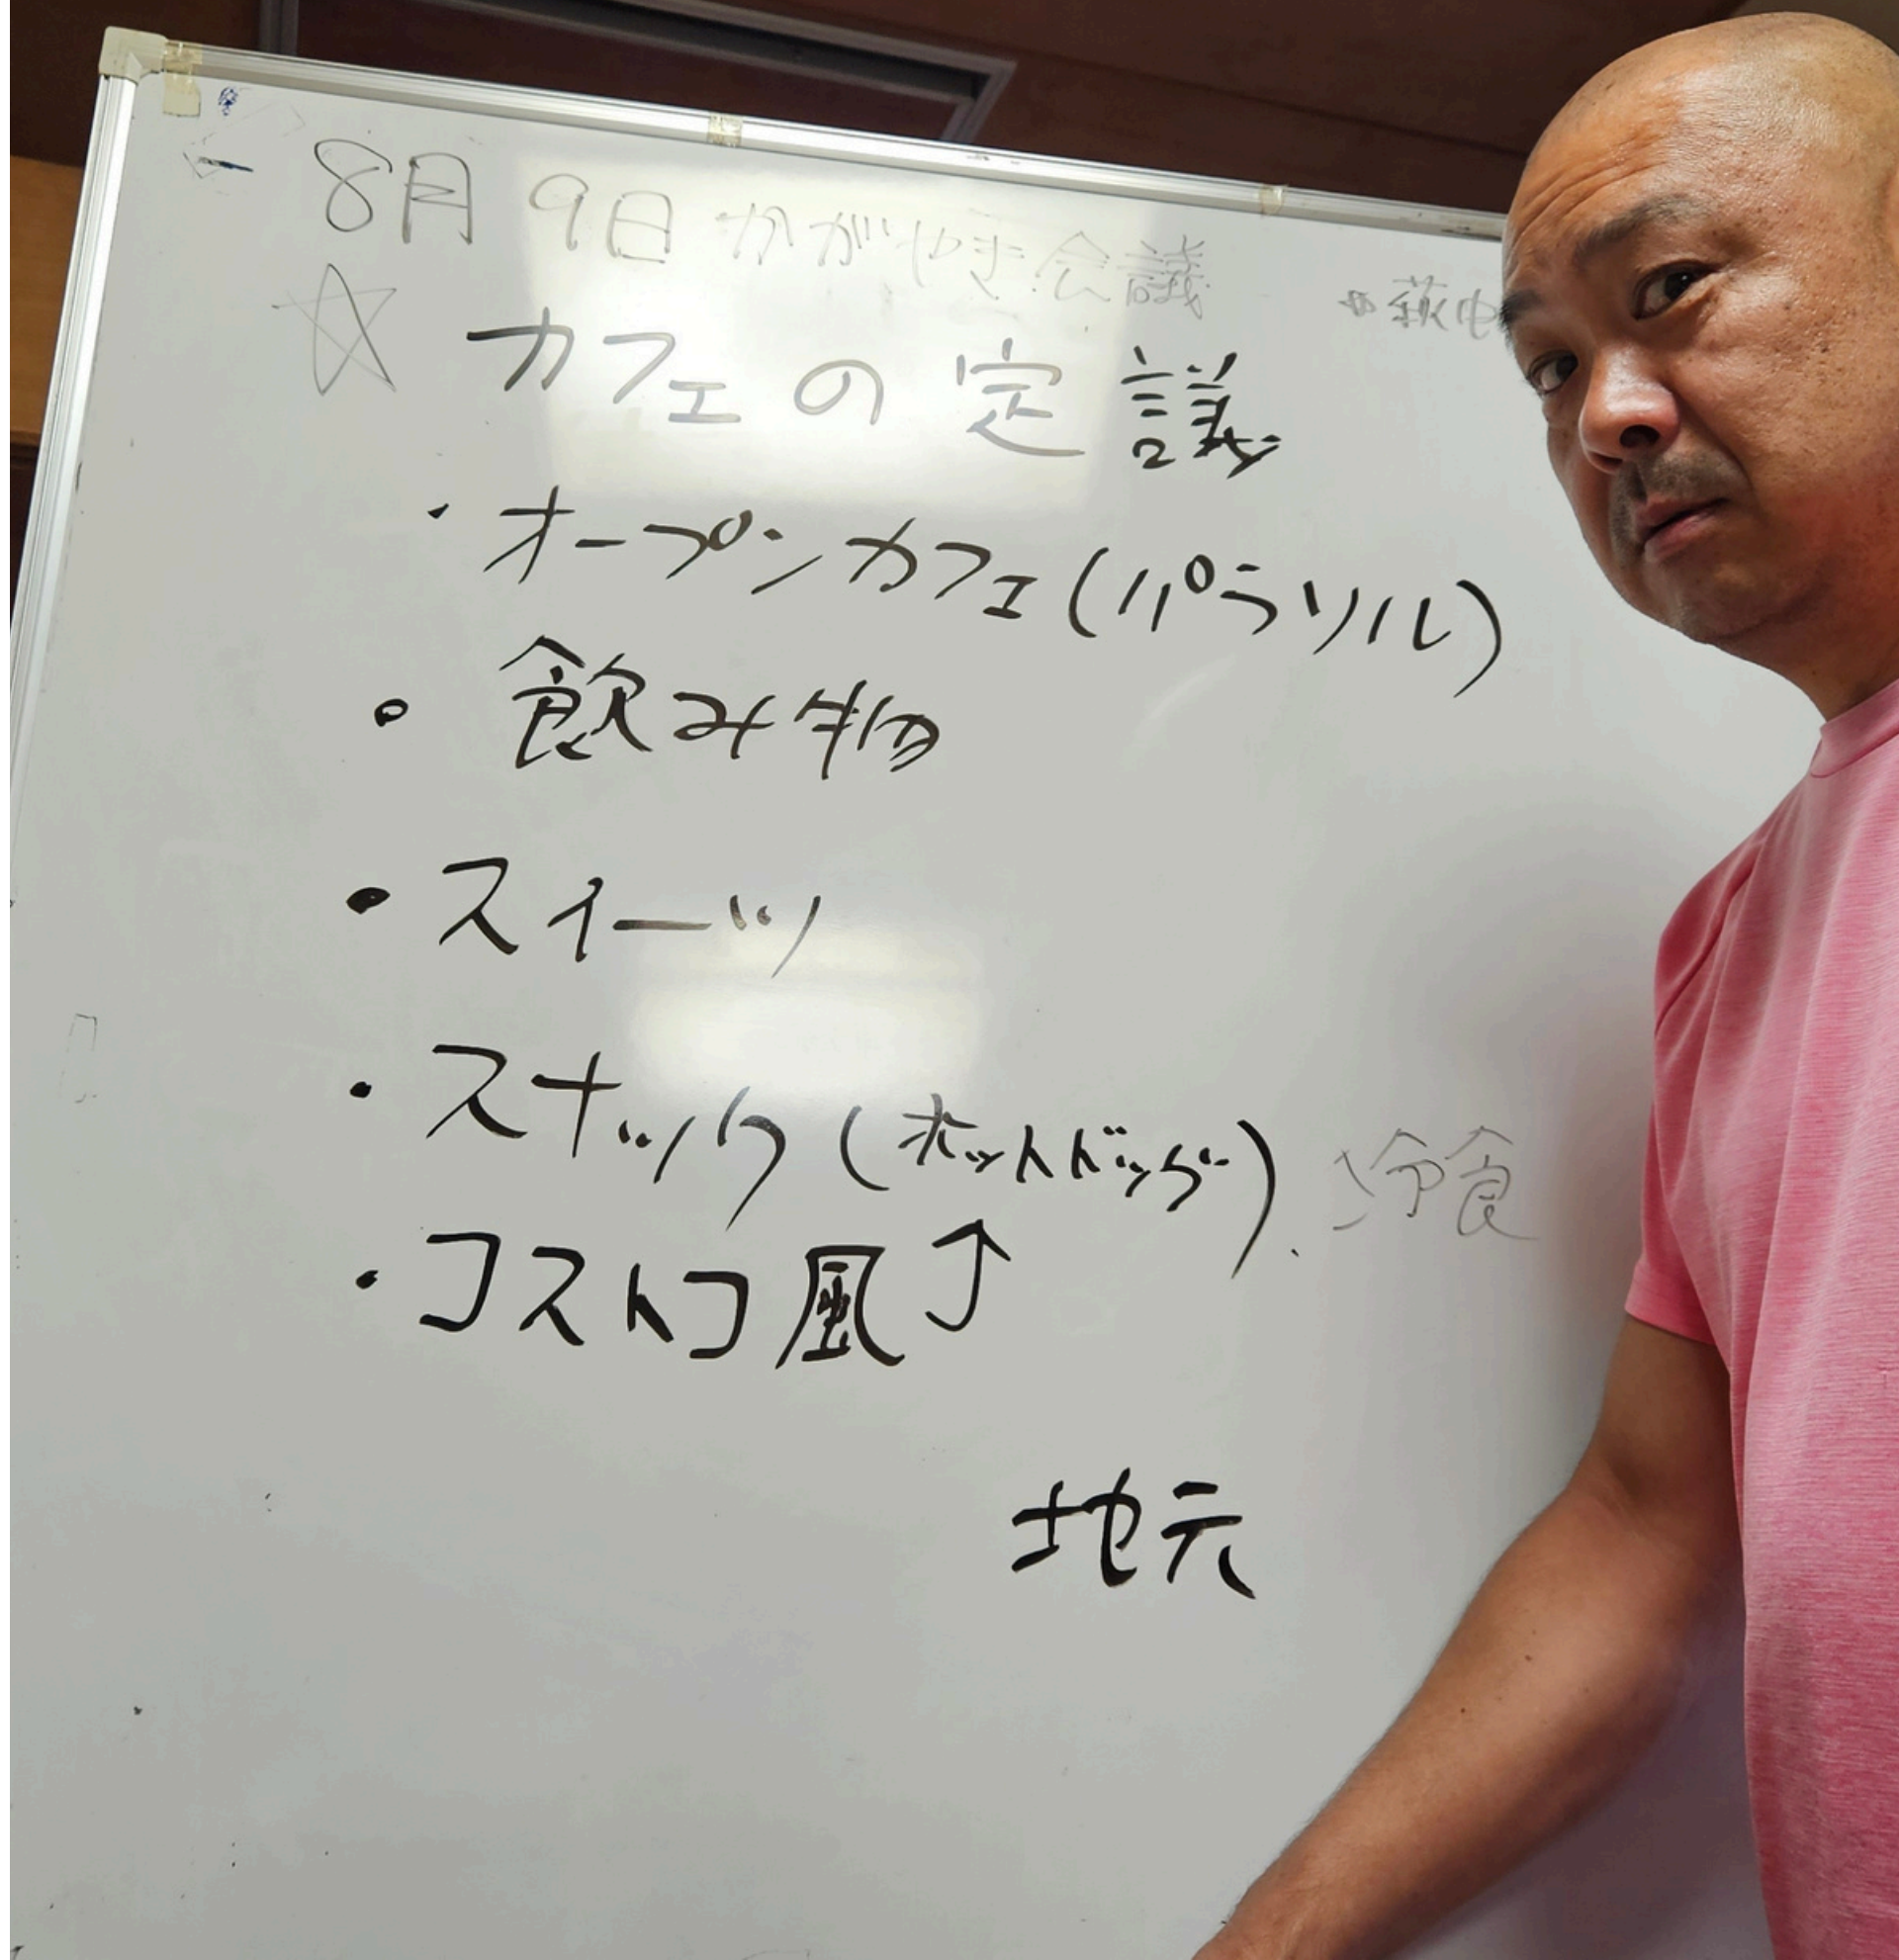 8月9日 かがやき会議
☆ カフェの定議
・オープンカフェ(パラソル)
・飲み物
・スイーツ
・スナック(ホットドッグ)、冷食
・コストコ風↑
地元